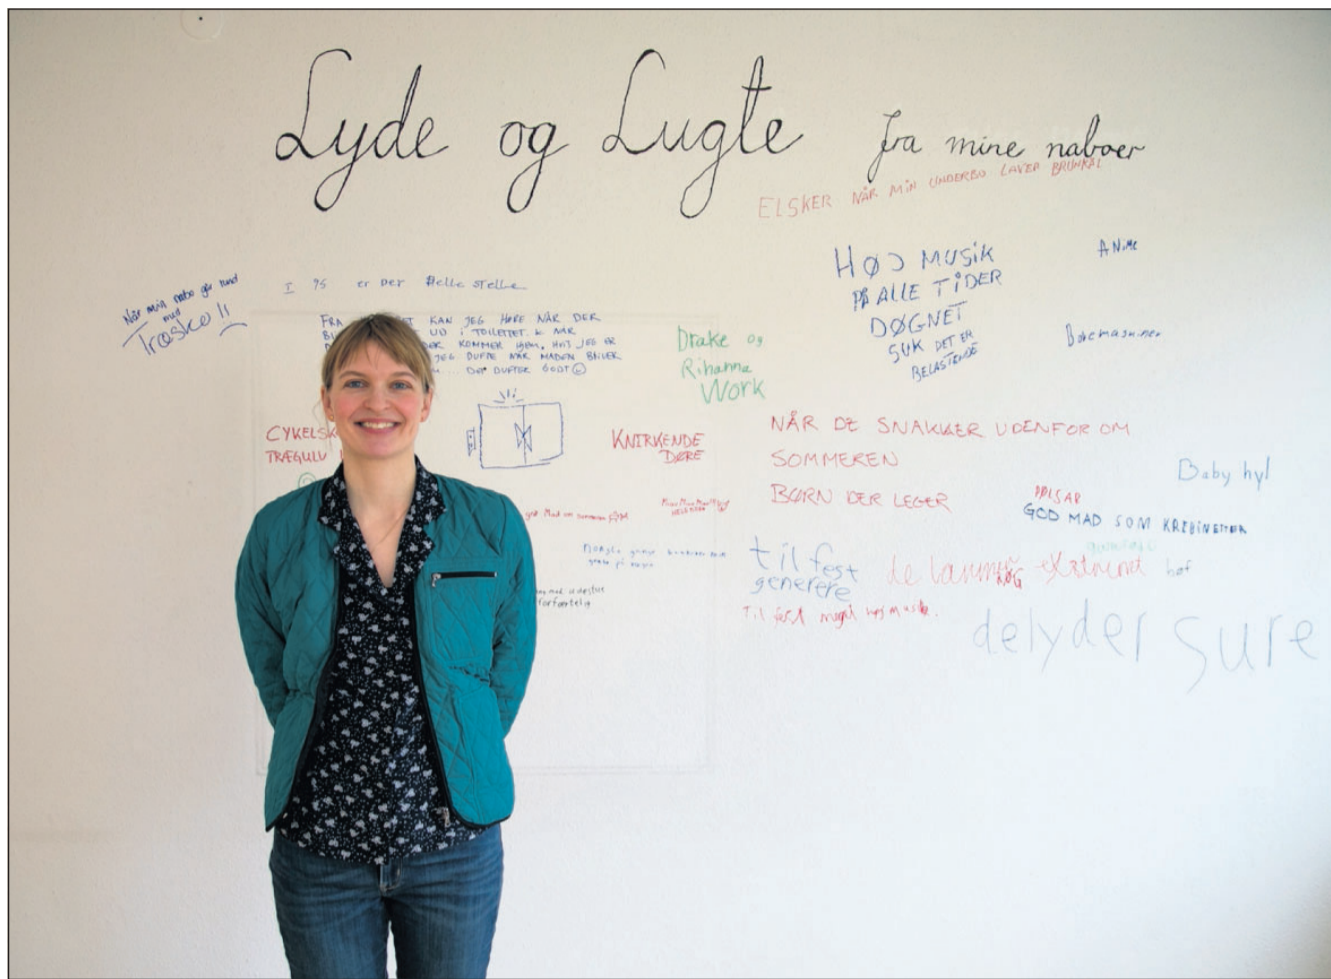 Lyde og Lugte fra mine naboer
ELSKER NÅR MIN UNDERBO LAVER BRUNKÅL
Når min nabo går rund
med
Træsko !!
I 95 er der Helle stelle
FRA KAN JEG HØRE NÅR DER
UD i TOILETTET
KOMMER HJEM, HVIS JEG ER
JEG DUFTE NÅR MADEN BLIVER
DET DUFTER GODT
Drake og
Rihanna
Work
HØJ MUSIK
PÅ ALLE TIDER
DØGNET
SUK DET ER
BELASTENDE
ANiMe
Boremaskiner
CYKELSK
TRÆGULV
KNIRKENDE
DØRE
NÅR DE SNAKKER UDENFOR OM
SOMMEREN
BØRN DER LEGER
Baby hyl
GOD MAD SOM KREBINETTER
god Mad om sommeren
til fest
generere
de larmer ekstremt
LØG
bøf
Til fest meget høj musik.
forfærtelig
delyder sure